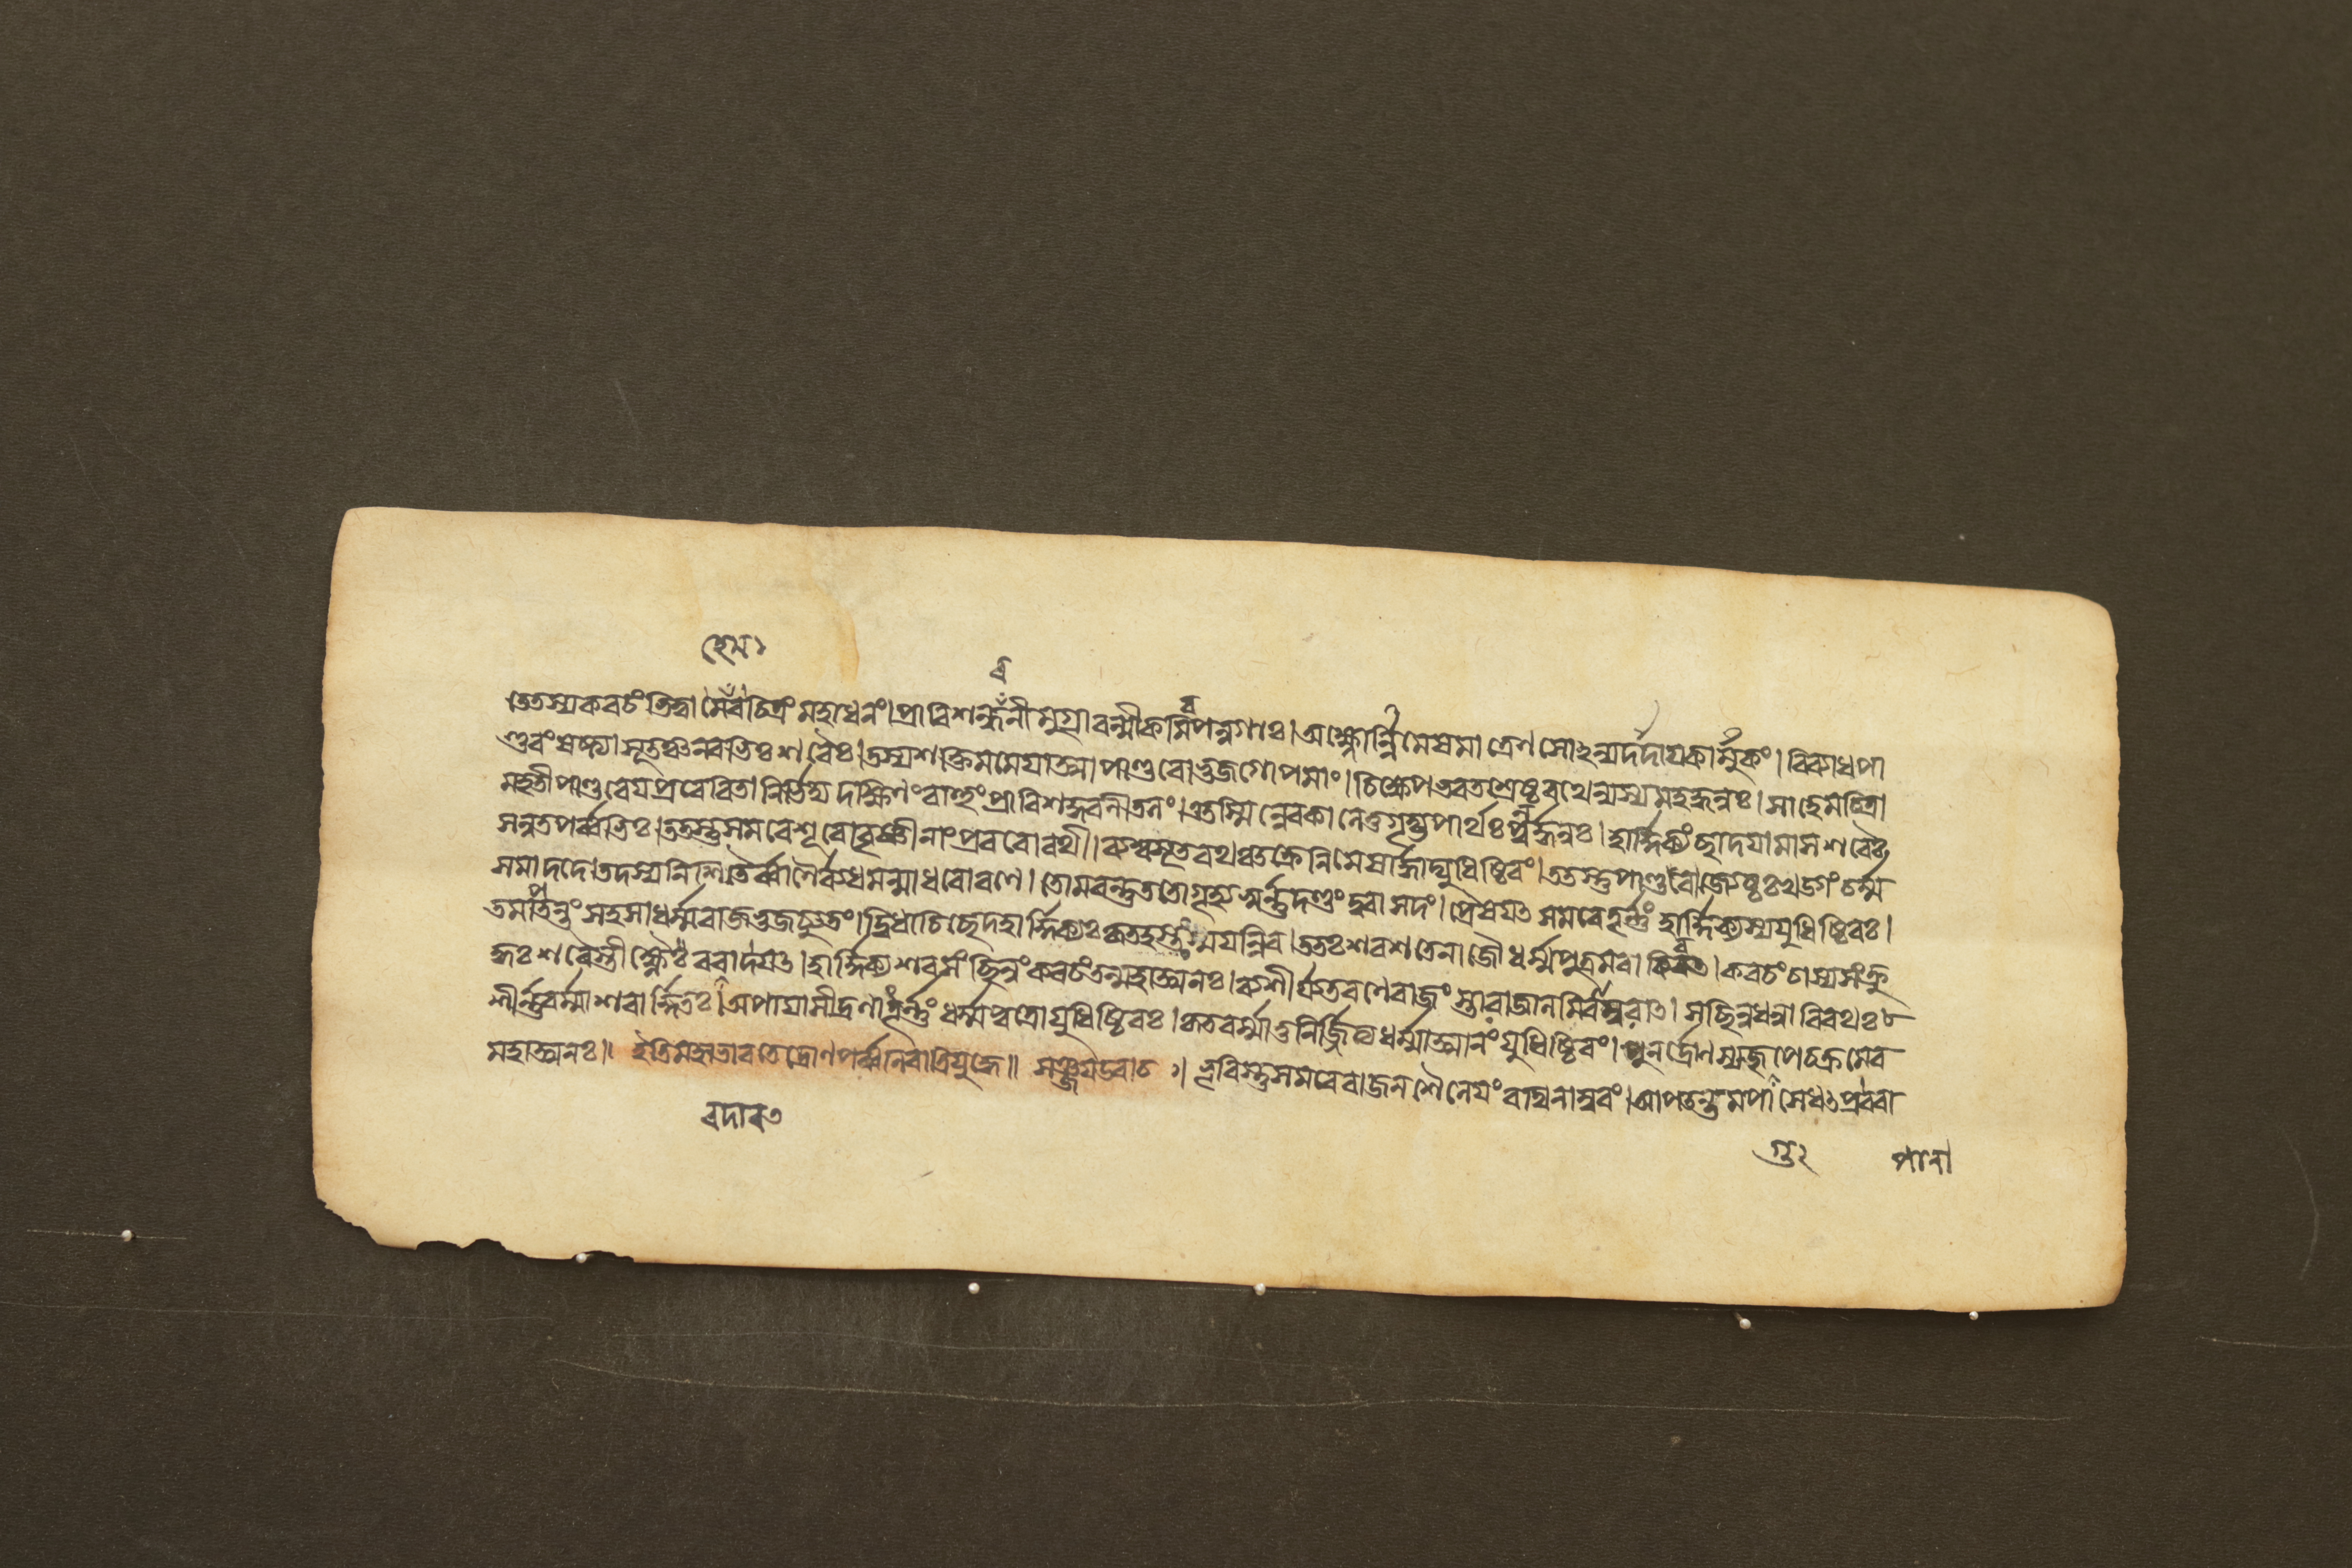 হেম১
র
ব
তেতস্যকবচং ভিত্বা মেবচিত্রং মহাধনং।প্রাবিশন্ধরনীমুগ্রাবল্মীকমিপন্নগাঃ।অক্ষ্নোর্ন্নিমেষমাত্রেণ সোঽন্যদর্দায়কার্ম্মুকং।বিব্যাধপা
ণ্ডবং ষষ্ট্যা সূতঞ্চনবভিঃ শরৈঃ।তস্যশক্তিমমেয়াত্মা পাণ্ডবোভুজগোপমাং।চিক্ষেপভরতশ্রেষ্ঠরথেন্যস্যমহদ্ধনুঃ।সাহেমচিত্রা
মহতীপাণ্ডবেয়প্রবেরিতা নির্ভিদ্য দক্ষিণং বাহুং প্রাবিশদ্ধরনীতলং।এতস্মিন্নেবকালেতুগৃহ্যপার্থঃ পুনর্দ্ধনুঃ।হার্দ্দিক্যং ছাদয়ামাসশরৈঃ
সন্নতপর্ব্বভিঃ।ততস্তুসমরেশূরোবৃষ্ণীনাং প্রবরোরথী।ব্যশ্বসূতরথঞ্চক্রেনিমেষার্দ্ধাদ্যুধিষ্ঠিরং।ততস্তুপাণ্ডবোজ্যেষ্ঠঃ খড্গং চর্ম্ম
সমাদদে।তদস্যনিশিতৈর্ব্বাণৈর্ব্যধমন্মাধবোরণে।তোমরন্তুততোগৃহ্য স্বর্ন্নদণ্ডং দুরাসদং।প্রেষয়ৎ সমরেতূর্ন্নং হার্দ্দিক্যস্যযুধিষ্ঠিরঃ।
তমাপতন্তং সহসাধর্ম্মরাজভুজচ্যুতং।দ্বিধাচিচ্ছেদহার্দ্দিক্যঃ কৃতহস্তঃ স্ময়ন্নিব।ততঃ শরশতেনাজৌ ধর্ম্মপুত্রমবাকিরত।কবচং চাস্যসংক্রু
দ্ধঃ শরৈস্তীক্ষ্ণৈঃ ররাদয়ৎ।হার্দ্দিক্যশরসংছিন্নং কবচং তন্মহাত্মনঃ।ব্যশীর্য্যতরণেরাজং স্তারাজালমিবাম্বরাৎ।সছিন্নধন্বাবিরথঃ
শীর্ন্নবর্ম্মাশরার্দ্দিতঃ।অপায়াসীদ্রণাত্তূর্ন্নং ধর্ম্মপুত্রোযুধিষ্ঠিরঃ।কৃতবর্ম্মাতুনির্জ্জিত্যধর্ম্মাত্মানং যুধিষ্ঠিরং।পুনর্দ্রোণস্যজুগুপেচক্রমেব
মহাত্মনঃ॥ ইতিমহাভারতেদ্রোণপর্ব্বনিরাত্রিযুদ্ধে॥ সঞ্জয়উবাচ ॥ ভূরিস্তুসমরেরাজনশৈনেয়ং রথিনাম্বরং।আপতন্তমপাসেধৎপ্রবরা
রদারৎ
গু২ পানা